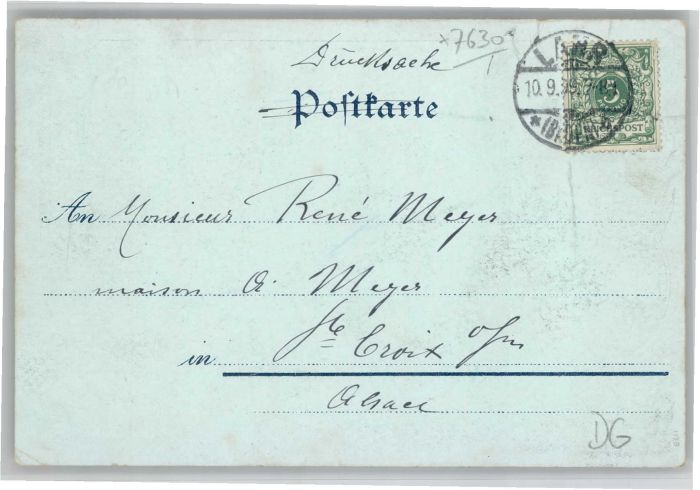 *7630
Drucksache
Postkarte
LAHR
10.9.99. 7-8
* (BADEN)
5
REICHSPOST
An Monsieur René Meyer
maison A. Meyer
in Ste Croix a/m
Alsace
DG